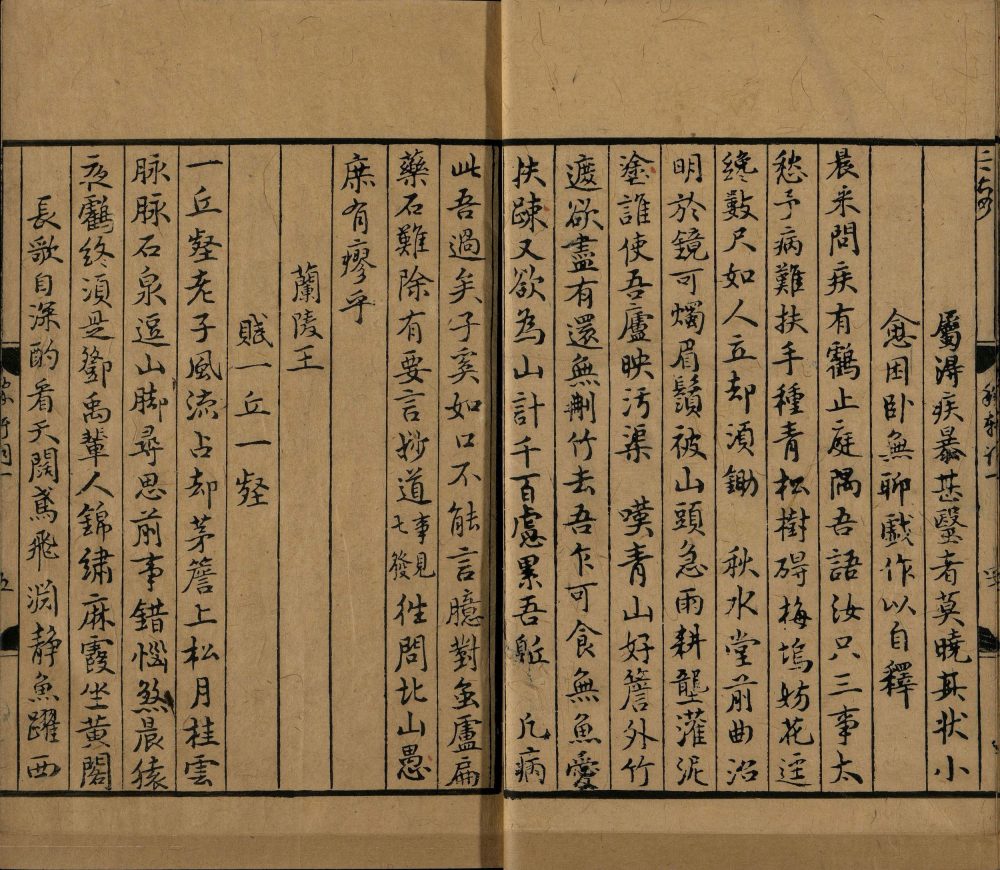 屬得疾暴甚毉者莫曉其状小
愈困卧無聊戱作以自釋
晨来問疾有鶴止庭隅吾語汝只三事太
愁予病難扶手種青松樹碍梅塢妨花逕
纔數尺如人立却須鋤　秋水堂前曲沼
明於鏡可燭眉鬚被山頭急雨耕壟灌泥
塗誰使吾廬映污渠　嘆青山好簷外竹
遮欲盡有還無刪竹去吾乍可食無魚愛
扶踈又欲為山計千百慮累吾躯　凢病
此吾過矣子奚如口不能言臆對雖盧扁
藥石難除有要言妙道事見七發徃問北山愚
庶有瘳乎
蘭陵王
賦一丘一壑
一丘壑老子風流占却茅簷上松月桂雲
脉脉石泉逗山脚尋思前事錯惱煞晨猿
夜鶴終須是鄧禹軰人錦繡麻霞坐黄閣
長歌自深酌看天闊鳶飛淵静魚躍西